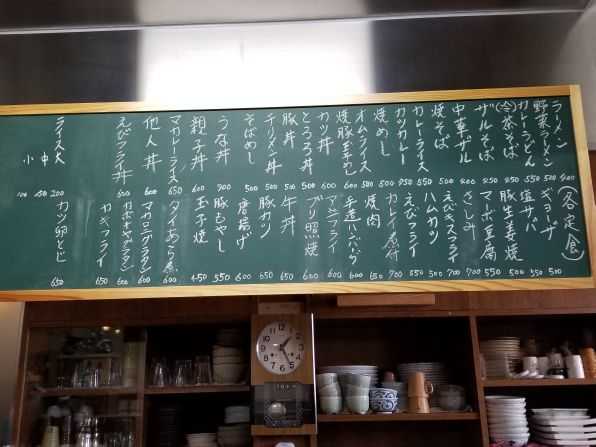 ラーメン 400
野菜ラーメン 500
カレーうどん 550
(冷)茶そば 450
ザルそば 450
中華ザル 400
焼そば
カレーライス 550
カツカレー 750
焼めし 500
オムライス 500
焼豚玉子めし 600
カツ丼 600
とろろ丼
豚丼
チリメン丼
そばめし
うな丼 900
親子丼 600
マカレーライス 650
他人丼 600
えびフライ丼 600
ライス大 200
中 150
小 100
(各定食)
ギョーザ 500
塩サバ 550
豚生姜焼 500
マーボ豆腐 550
さしみ 700
えびキスフライ
ハムカツ
えびフライ 550
カレイ煮付 700
焼肉 650
手造ハンバーグ 600
アジフライ 600
ブリ照焼 600
牛丼 650
豚カツ 650
唐揚げ 600
豚もやし 550
玉子焼 450
タイあら煮 600
マカロニグラタン 600
カボチャグラタン 600
カキフライ 650
カツ卵とじ 650